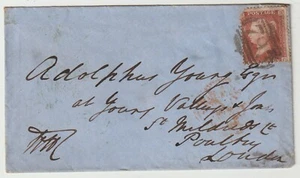 POSTAGE
Adolphus Young Esqr
at Young Vallings & Sons
St Mildreds Ct
Poultry
London